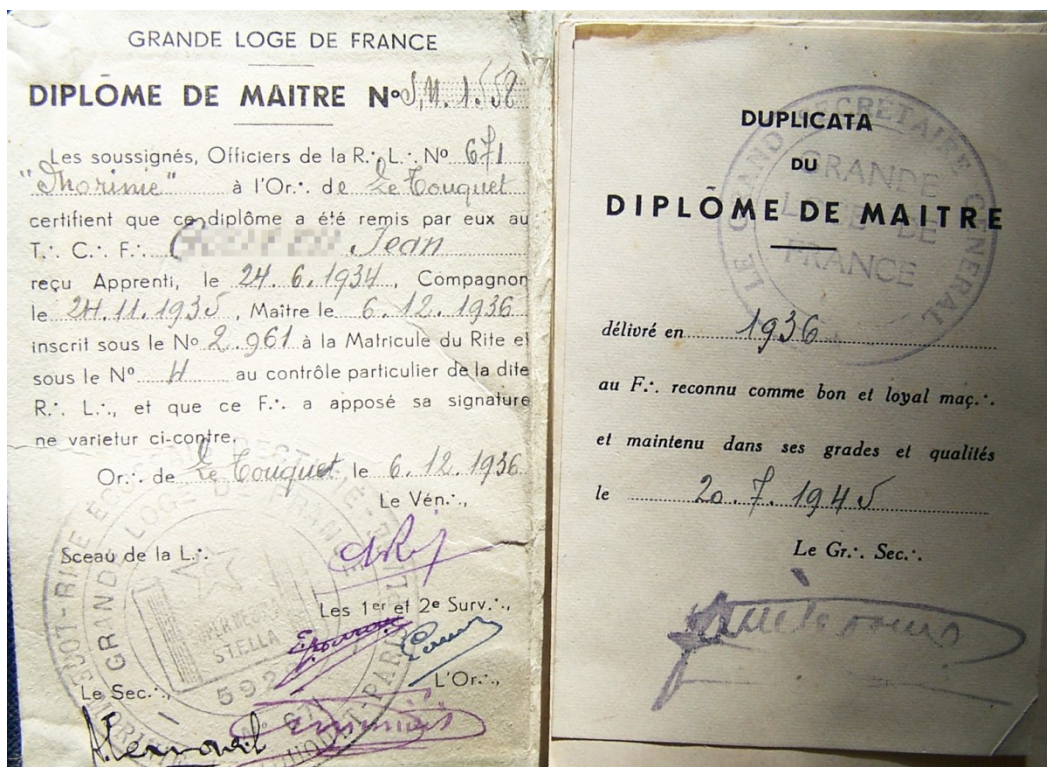 GRANDE LOGE DE FRANCE
DIPLÔME DE MAITRE No S.N. 1.558
Les soussignés, Officiers de la R∴ L∴ No 671
"Morinie" à l'Or∴ de Le Touquet
certifient que ce diplôme a été remis par eux au
T∴ C∴ F∴ Jean
reçu Apprenti, le 24.6.1934, Compagnon
le 24.11.1935, Maître le 6.12.1936
inscrit sous le No 2.961 à la Matricule du Rite et
sous le No 4 au contrôle particulier de la dite
R∴ L∴, et que ce F∴ a apposé sa signature
ne varietur ci-contre.
Or∴ de Le Touquet le 6.12.1936
Le Vén∴,
Sceau de la L∴
Les 1er et 2e Surv∴,
Le Sec∴, L'Or∴,
GRANDE LOGE DE FRANCE
STELLA
592
DUPLICATA
DU
DIPLÔME DE MAITRE
délivré en 1936
au F∴ reconnu comme bon et loyal maç∴
et maintenu dans ses grades et qualités
le 20.7.1945
Le Gr∴ Sec∴
LE GRAND SECRÉTAIRE GÉNÉRAL
GRANDE
LOGE DE
FRANCE